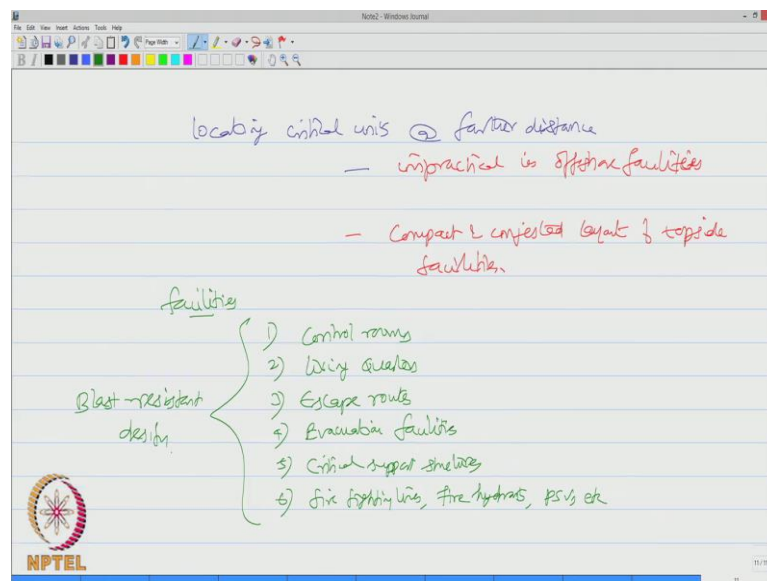 Note2 - Windows Journal
File Edit View Insert Actions Tools Help
Page Width
B I
locating critical units @ farther distance
— impractical in offshore facilities
— Compact & conjested layout of topside
facilities.
facilities
Blast-resistant
design
1) Control rooms
2) living quarters
3) Escape routes
4) Evacuation facilities
5) Critical support structures
6) fire fighting lines, fire hydrants, PSVs etc
NPTEL